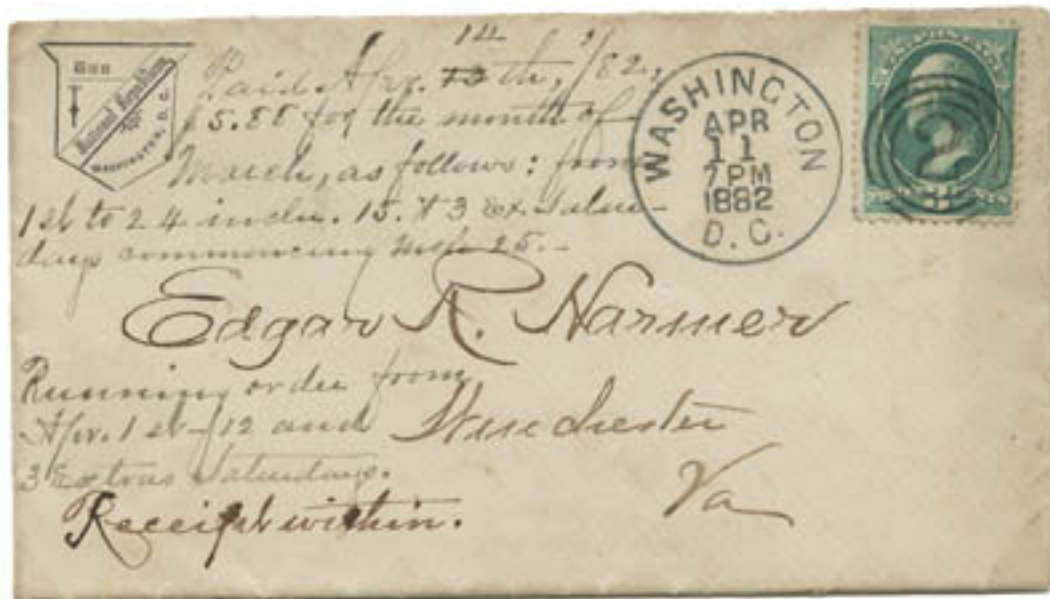 National Republican
WASHINGTON, D.C.
Paid Apr. 13 14 th, /82,
$5.85 for the month of
March, as follows: from
1st to 24 inclu. 15. & 3 Ex. Satur-
days commencing 25.-
WASHINGTON
APR
11
7 PM
1882
D.C.
2
Edgar R. Harmer
Winchester
Va
Running order from
Apr. 1st -/12 and
3 Extras Saturdays.
Receipt within.